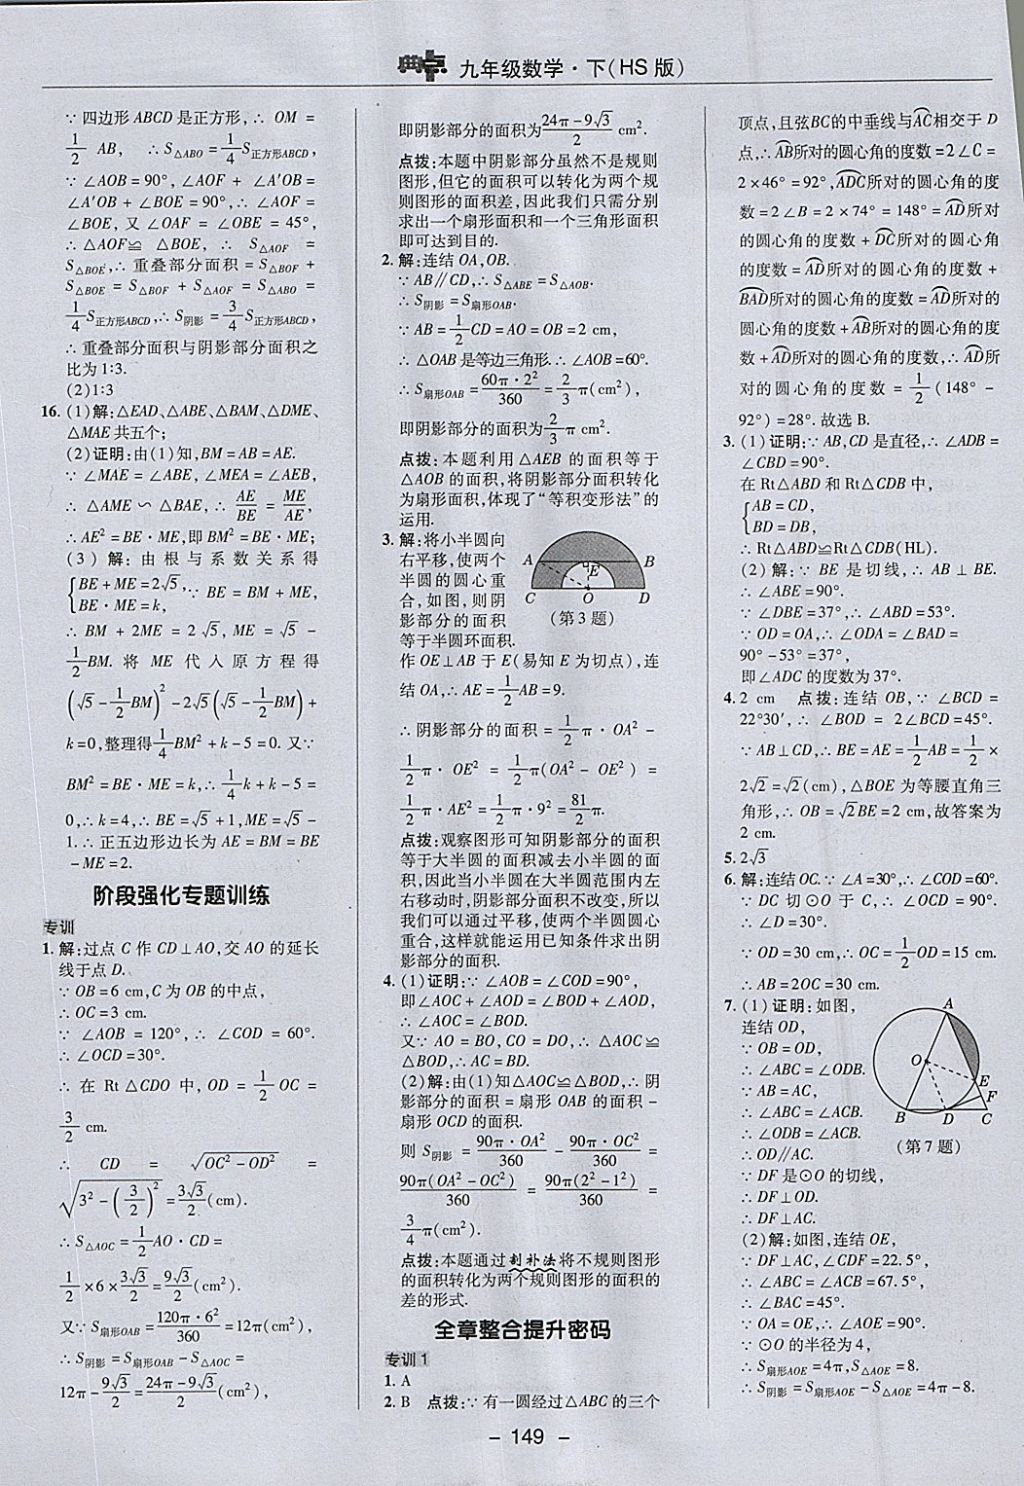 典点 九年级数学·下(HS版)
∵四边形ABCD是正方形,∴OM=
1/2 AB, ∴S△ABO=1/4 S正方形ABCD,
∵∠AOB=90°,∠AOF+∠A′OB=
∠A′OB+∠BOE=90°,∴∠AOF=
∠BOE,又∠OAF=∠OBE=45°,
∴△AOF≌△BOE, ∴S△AOF=
S△BOE,∴重叠部分面积=S△BOF+
S△BOE=S△BOF+S△AOF=S△ABO=
1/4 S正方形ABCD,∴S阴影=3/4 S正方形ABCD,
∴重叠部分面积与阴影部分面积之
比为1∶3.
(2)1∶3
16.(1)解:△EAD、△ABE、△BAM、△DME、
△MAE共五个;
(2)证明:由(1)知,BM=AB=AE.
∵∠MAE=∠ABE,∠MEA=∠AEB,
∴△AME∽△BAE,∴AE/BE=ME/AE,
∴AE²=BE·ME,即BM²=BE·ME;
(3)解:由根与系数关系得
{BE+ME=2√5,
BE·ME=k, ∵BE=BM+ME,
∴BM+2ME=2√5,ME=√5-
1/2 BM.将ME代入原方程得
(√5-1/2 BM)²-2√5(√5-1/2 BM)+
k=0,整理得1/4 BM²+k-5=0.又∵
BM²=BE·ME=k,∴1/4 k+k-5=
0,∴k=4,∴BE=√5+1,ME=√5-
1.∴正五边形边长为AE=BM=BE
-ME=2.
阶段强化专题训练
专训
1.解:过点C作CD⊥AO,交AO的延长
线于点D.
∵OB=6 cm,C为OB的中点,
∴OC=3 cm.
∵∠AOB=120°,∴∠COD=60°.
∴∠OCD=30°.
∴在Rt△CDO中,OD=1/2 OC=
3/2 cm.
∴CD=√(OC²-OD²)=
√(3²-(3/2)²)=3√3/2(cm).
∴S△AOC=1/2 AO·CD=
1/2×6×3√3/2=9√3/2(cm²).
又∵S扇形OAB=120π·6²/360=12π(cm²),
∴S阴影=S扇形OAB-S△AOC=
12π-9√3/2=(24π-9√3)/2(cm²),
即阴影部分的面积为(24π-9√3)/2 cm².
点拨:本题中阴影部分虽然不是规则
图形,但它的面积可以转化为两个规
则图形的面积差,因此我们只需分别
求出一个扇形面积和一个三角形面积
即可达到目的.
2.解:连结OA,OB.
∵AB∥CD,∴S△ABE=S△AOB.
∴S阴影=S扇形OAB.
∵AB=1/2 CD=AO=OB=2 cm,
∴△OAB是等边三角形.∴∠AOB=60°.
∴S扇形OAB=60π·2²/360=2/3 π(cm²),
即阴影部分的面积为2/3 π cm².
点拨:本题利用△AEB的面积等于
△AOB的面积,将阴影部分面积转化
为扇形面积,体现了“等积变形法”的
运用.
3.解:将小半圆向
右平移,使两个
半圆的圆心重
合,如图,则阴
影部分的面积
等于半圆环面积.
A B E C O D
(第3题)
作OE⊥AB于E(易知E为切点),连
结OA,∴AE=1/2 AB=9.
∴阴影部分的面积=1/2 π·OA²-
1/2 π·OE²=1/2 π(OA²-OE²)=
1/2 π·AE²=1/2 π·9²=81/2 π.
点拨:观察图形可知阴影部分的面积
等于大半圆的面积减去小半圆的面
积,因此当小半圆在大半圆范围内左
右移动时,阴影部分面积不改变,所以
我们可以通过平移,使两个半圆圆心
重合,这样就能运用已知条件求出阴
影部分的面积.
4.(1)证明:∵∠AOB=∠COD=90°,
即∠AOC+∠AOD=∠BOD+∠AOD,
∴∠AOC=∠BOD.
又∵AO=BO,CO=DO,∴△AOC≌
△BOD,∴AC=BD.
(2)解:由(1)知△AOC≌△BOD,∴阴
影部分的面积=扇形OAB的面积-
扇形OCD的面积.
则S阴影=90π·OA²/360-90π·OC²/360=
90π(OA²-OC²)/360=90π(2²-1²)/360=
3/4 π(cm²).
点拨:本题通过割补法将不规则图形
的面积转化为两个规则图形的面积的
差的形式.
全章整合提升密码
专训1
1.A
2.B 点拨:∵有一圆经过△ABC的三个
顶点,且弦BC的中垂线与AC⌒相交于D
点,∴AB⌒所对的圆心角的度数=2∠C=
2×46°=92°,ADC⌒所对的圆心角的度
数=2∠B=2×74°=148°=AD⌒所对
的圆心角的度数+DC⌒所对的圆心角
的度数=AD⌒所对的圆心角的度数+
BAD⌒所对的圆心角的度数=AD⌒所对的
圆心角的度数+AB⌒所对的圆心角的度
数+AD⌒所对的圆心角的度数,∴AD⌒所
对的圆心角的度数=1/2(148°-
92°)=28°.故选B.
3.(1)证明:∵AB,CD是直径,∴∠ADB=
∠CBD=90°.
在Rt△ABD和Rt△CDB中,
{AB=CD,
BD=DB,
∴Rt△ABD≌Rt△CDB(HL).
(2)解:∵BE是切线,∴AB⊥BE.
∴∠ABE=90°.
∵∠DBE=37°,∴∠ABD=53°.
∵OD=OA,∴∠ODA=∠BAD=
90°-53°=37°,
即∠ADC的度数为37°.
4.2 cm 点拨:连结OB,∵∠BCD=
22°30′,∴∠BOD=2∠BCD=45°.
∵AB⊥CD,∴BE=AE=1/2 AB=1/2×
2√2=√2(cm),△BOE为等腰直角三
角形,∴OB=√2BE=2 cm,故答案为
2 cm.
5.2√3
6.解:连结OC.∵∠A=30°,∴∠COD=60°.
∵DC切⊙O于C,∴∠OCD=90°.
∴∠D=30°.
∵OD=30 cm,∴OC=1/2 OD=15 cm.
∴AB=2OC=30 cm.
7.(1)证明:如图,
连结OD,
∵OB=OD,
∴∠ABC=∠ODB.
∵AB=AC,
∴∠ABC=∠ACB.
∴∠ODB=∠ACB.
∴OD∥AC.
A O E F B D C
(第7题)
∵DF是⊙O的切线,
∴DF⊥OD.
∴DF⊥AC.
(2)解:如图,连结OE,
∵DF⊥AC,∠CDF=22.5°,
∴∠ABC=∠ACB=67.5°,
∴∠BAC=45°.
∵OA=OE,∴∠AOE=90°.
∵⊙O的半径为4,
∴S扇形AOE=4π,S△AOE=8.
∴S阴影=S扇形AOE-S△AOE=4π-8.
- 149 -